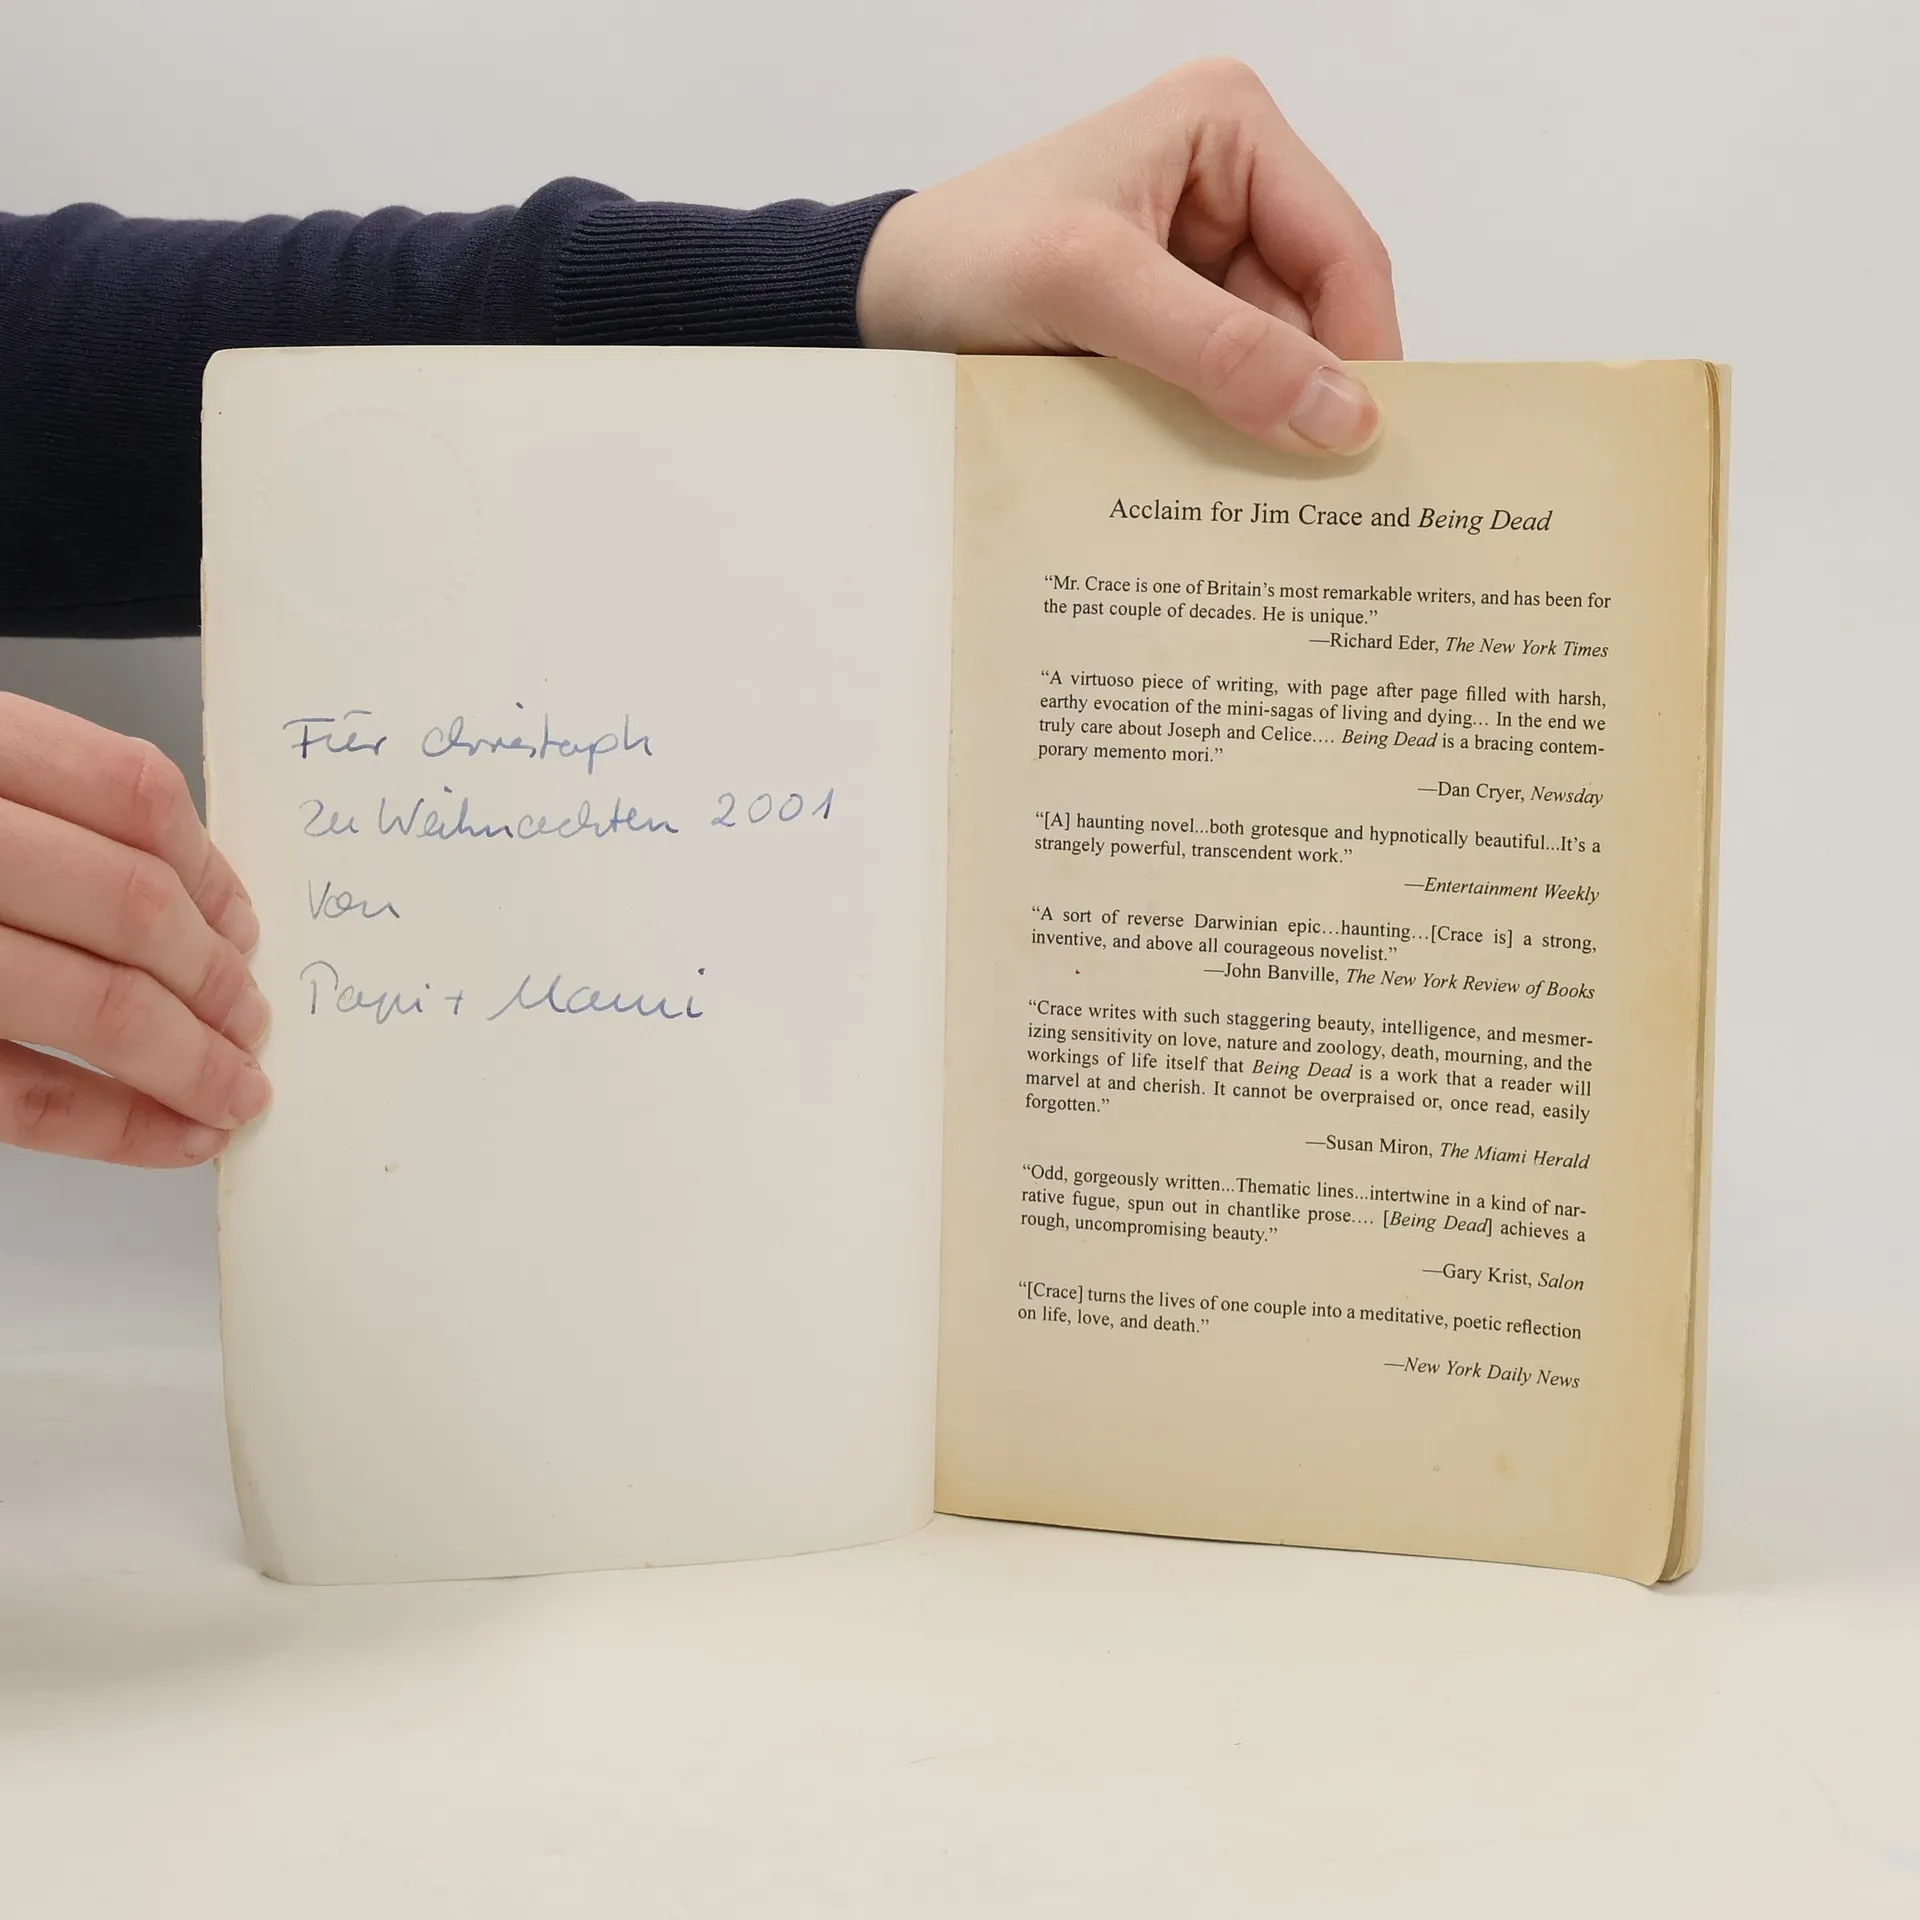 Für Christoph
zu Weihnachten 2001
von
Papi + Mami
Acclaim for Jim Crace and Being Dead
“Mr. Crace is one of Britain’s most remarkable writers, and has been for
the past couple of decades. He is unique.”
—Richard Eder, The New York Times
“A virtuoso piece of writing, with page after page filled with harsh,
earthy evocation of the mini-sagas of living and dying... In the end we
truly care about Joseph and Celice.... Being Dead is a bracing contem-
porary memento mori.”
—Dan Cryer, Newsday
“[A] haunting novel...both grotesque and hypnotically beautiful...It’s a
strangely powerful, transcendent work.”
—Entertainment Weekly
“A sort of reverse Darwinian epic...haunting...[Crace is] a strong,
inventive, and above all courageous novelist.”
—John Banville, The New York Review of Books
“Crace writes with such staggering beauty, intelligence, and mesmer-
izing sensitivity on love, nature and zoology, death, mourning, and the
workings of life itself that Being Dead is a work that a reader will
marvel at and cherish. It cannot be overpraised or, once read, easily
forgotten.”
—Susan Miron, The Miami Herald
“Odd, gorgeously written...Thematic lines...intertwine in a kind of nar-
rative fugue, spun out in chantlike prose.... [Being Dead] achieves a
rough, uncompromising beauty.”
—Gary Krist, Salon
“[Crace] turns the lives of one couple into a meditative, poetic reflection
on life, love, and death.”
—New York Daily News